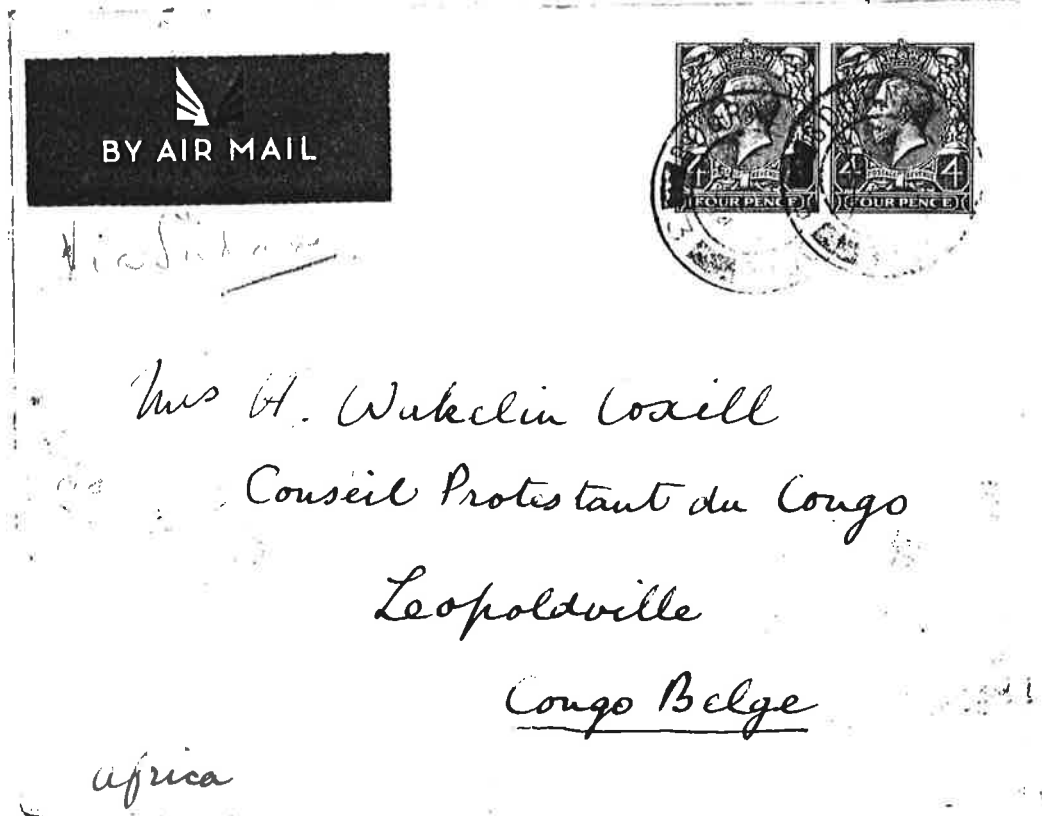 BY AIR MAIL
Via
4 4
FOUR PENCE FOUR PENCE
POSTAGE REVENUE
Mrs H. Wakelin Coxill
Conseil Protestant du Congo
Leopoldville
Congo Belge
Africa